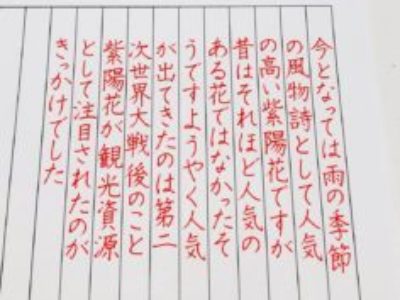 今となっては雨の季節
の風物詩として人気
の高い紫陽花ですが
昔はそれほど人気の
ある花ではなかったそ
うですようやく人気
が出てきたのは第二
次世界大戦後のこと
紫陽花が観光資源
として注目されたのが
きっかけでした